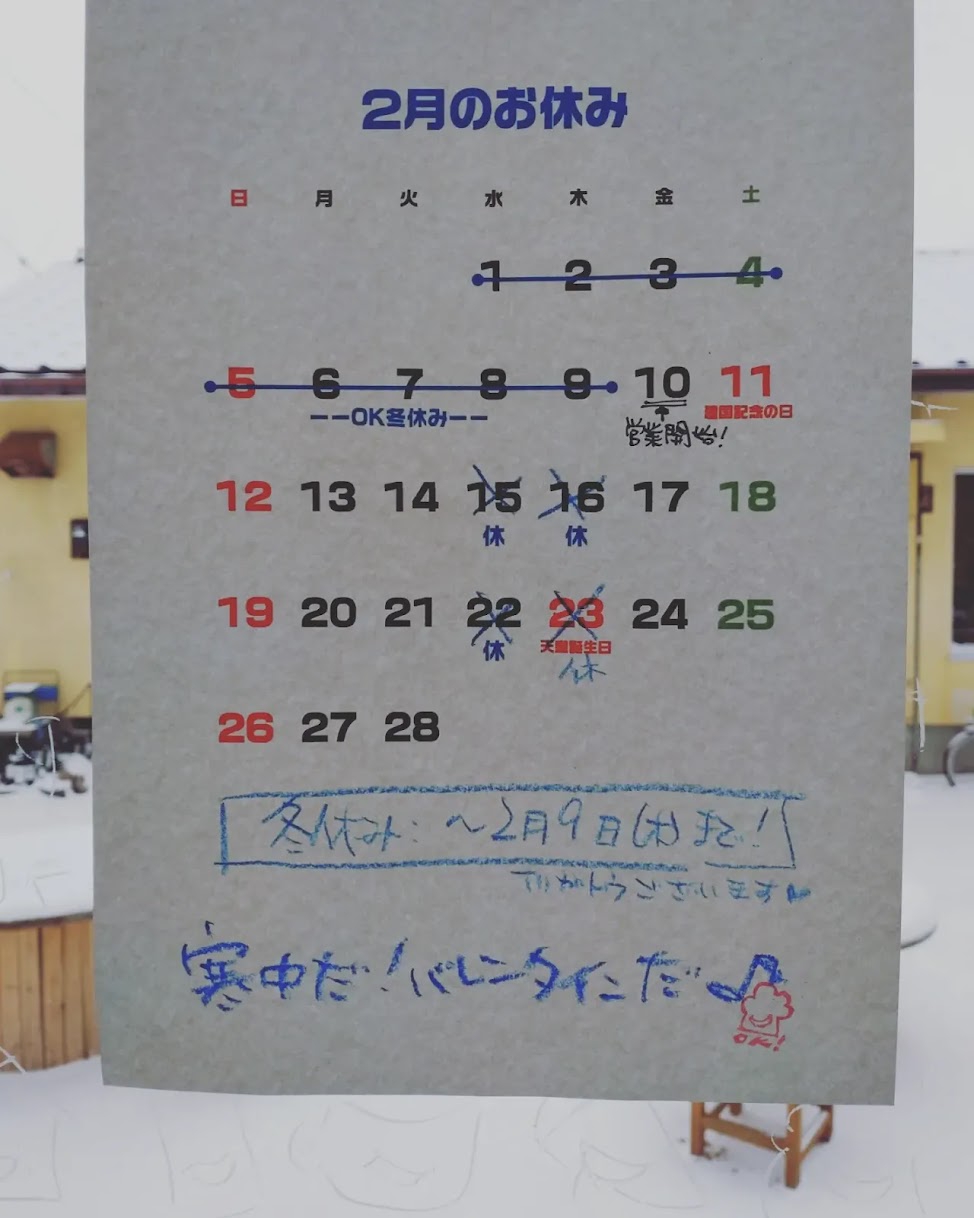 2月のお休み
日 月 火 水 木 金 土
1 2 3 4
5 6 7 8 9 10 11
ーーOK冬休みーー 建国記念の日
営業開始!
12 13 14 15 16 17 18
休 休
19 20 21 22 23 24 25
休 天皇誕生日
休
26 27 28
冬休み:〜2月9日(木)まで!
ありがとうございます
寒中だ!バレンタインだ♪
OK!